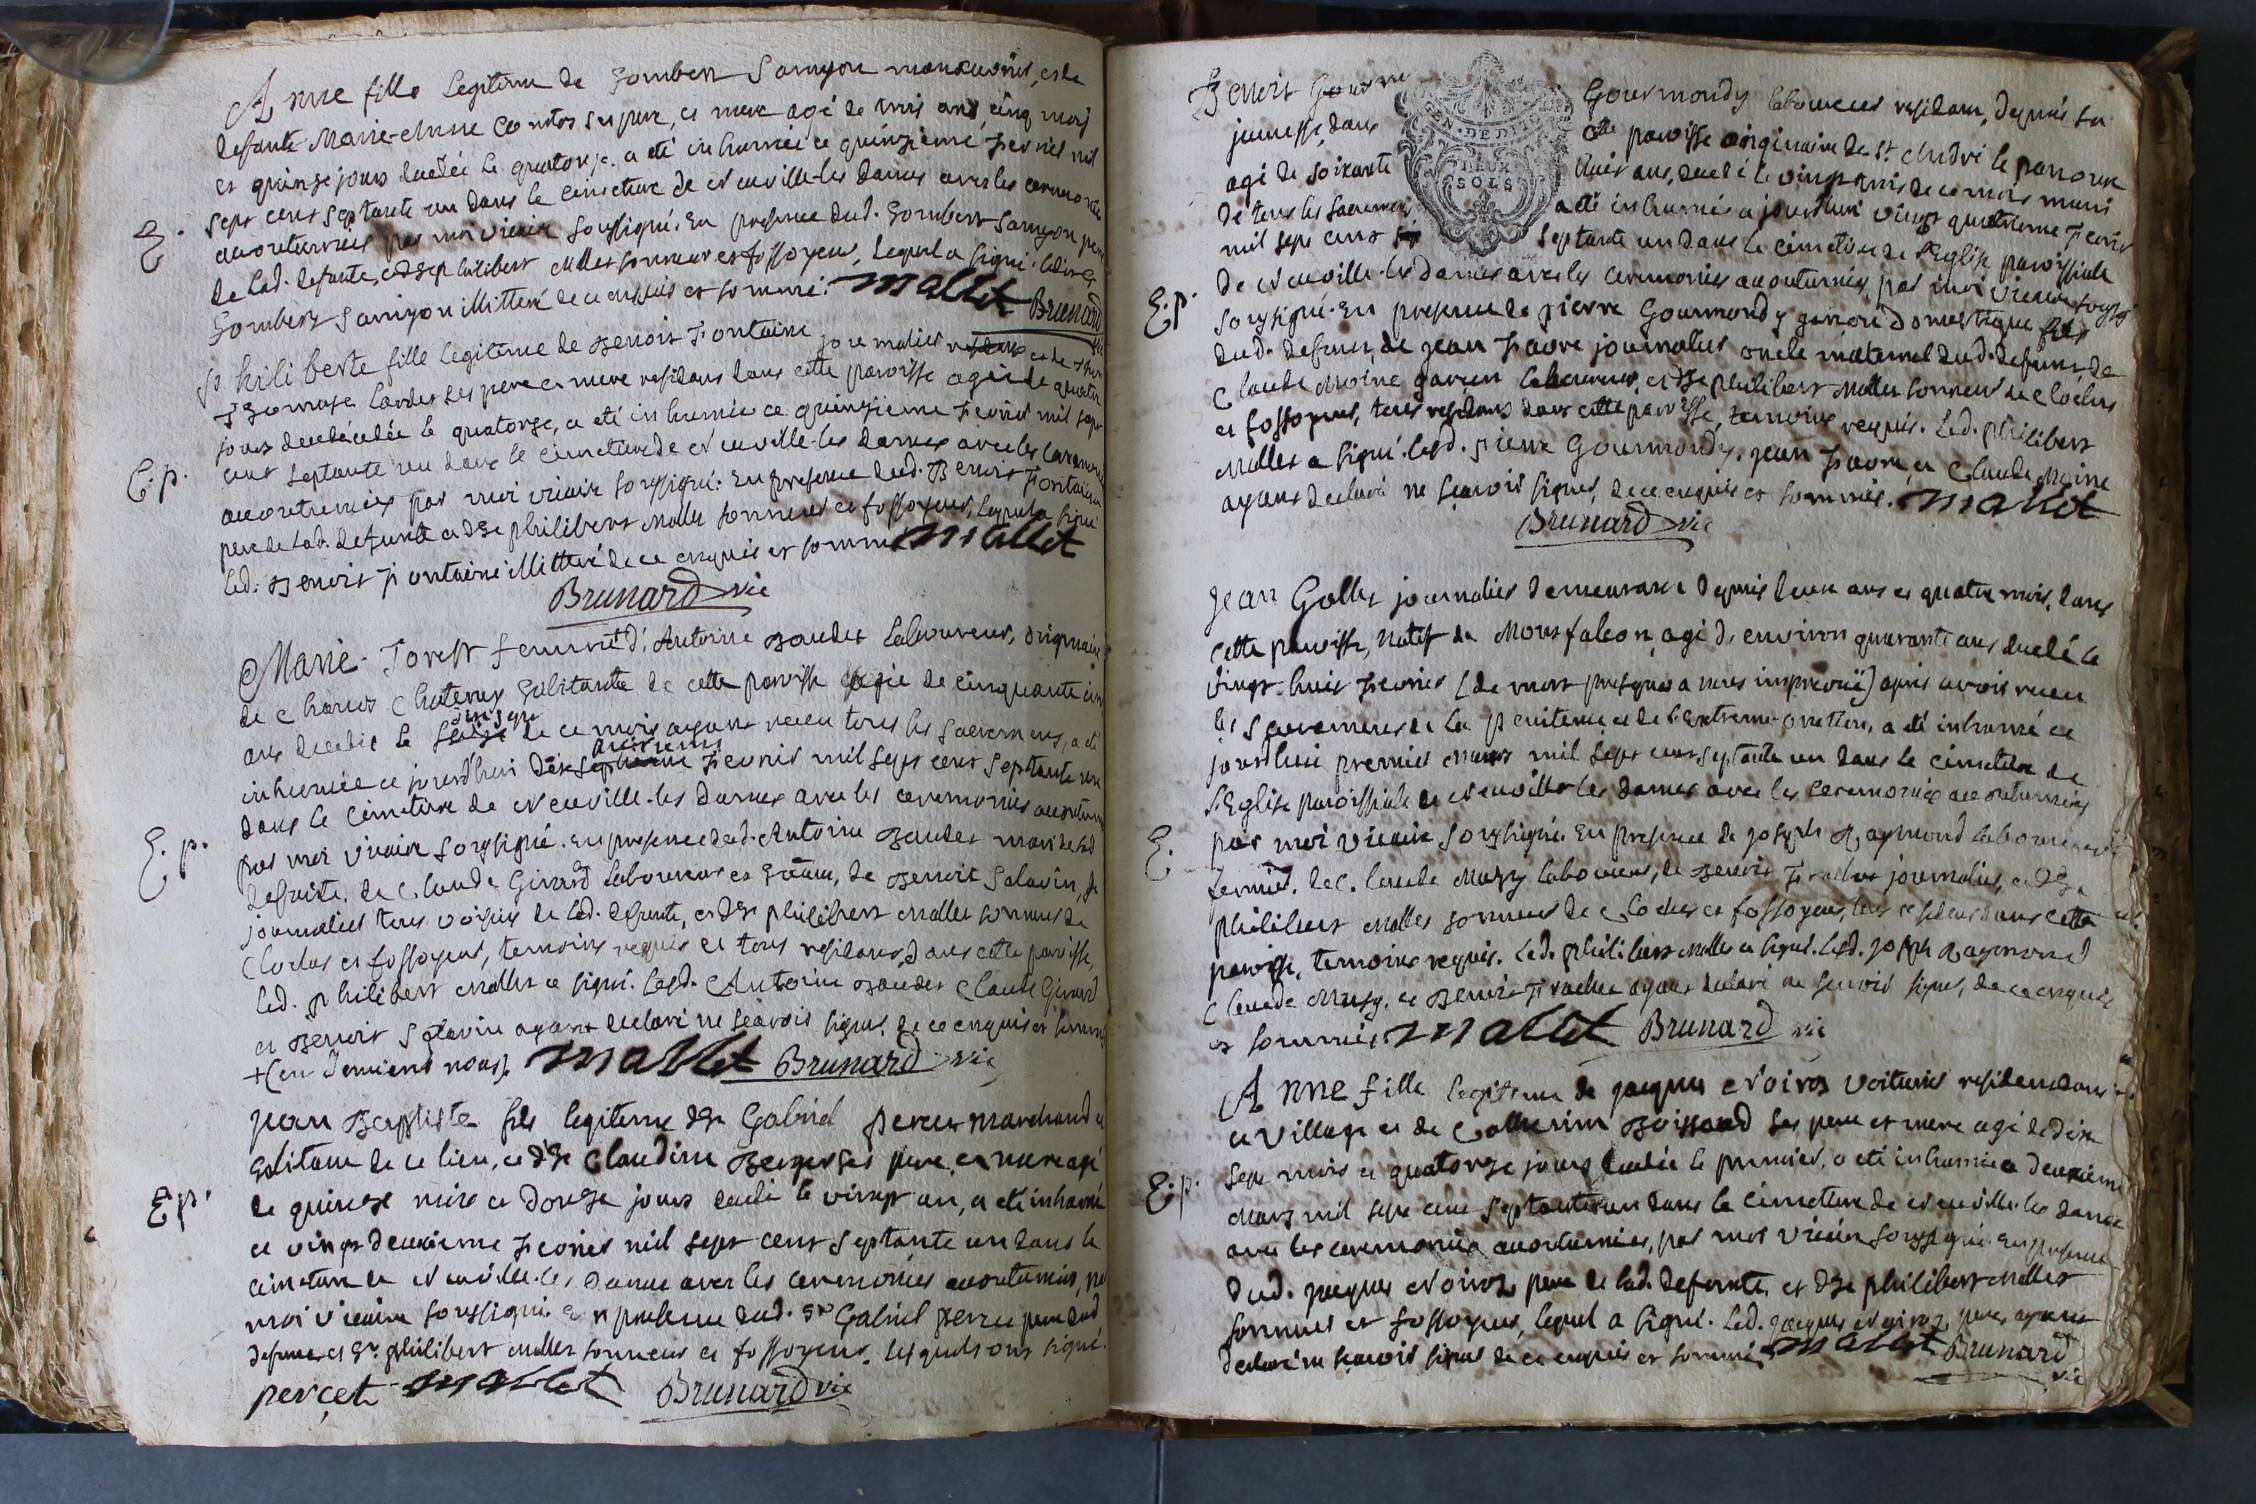 Anne fille legitime de Gombert Samyon manœuvrier, et de
defunte Marie-Anne Comtos ses pere, et mere agé de trois ans, cinq mois
et quinze jours decedée le quatorze. a eté inhumée ce quinzieme Fevrier mil
sept cent septante un dans le cimetiere de Neuville-les dames avec les ceremonies
E.
accoutumées par moi vicaire soussigné. En presence dud. Gombert Samyon pere
de lad. defunte, et de philibert Mallet sonneur et fossoyeur, lequel a signé. ledit
Gombert Samyon illitteré de ce enquis et sommé. mallet Brunard
vic
philiberte fille legitime de Benoit Fontaine journalier et de
Lardet ses pere et mere residans dans cette paroisse agée de quatre
jours decedée le quatorze, a eté inhumée ce quinzieme Fevrier mil sept
E. p.
cent septante un dans le cimetiere de Neuville-les dames avec les ceremonies
accoutumées par moi vicaire soussigné. En presence dud. Benoit Fontaine
pere de lad. defunte et de philibert Mallet sonneur et fossoyeur, lequel a signé
led. Benoit Fontaine illitteré de ce enquis et sommé mallet
Brunard vic
Marie Forest femme d'Antoine Baudet laboureur, originaire
de Chatenay habitante de cette paroisse agée de cinquante cinq
ans decedée le de ce mois ayant receu tous les sacremens, a eté
inhumée ce jourd'hui Fevrier mil sept cent septante un
dans le cimetiere de Neuville-les dames avec les ceremonies accoutumées
E. p.
par moi vicaire soussigné. En presence dud. Antoine Baudet mari de lad
defunte, de Claude Girard laboureur et, de Benoit Salavin,
journalier tous voisins de lad. defunte, et de philibert Mallet sonneur de
Cloches et fossoyeur, temoins requis et tous residans dans cette paroisse,
led. philibert Mallet a signé. lesd. Antoine Baudet Claude Girard
et Benoit Salavin ayant declaré ne sçavoir signer de ce enquis et sommés
mallet Brunard vic
Jean Baptiste fils legitime de Sr Gabriel percet marchand et
habitant de ce lieu, et de Claudine Berger ses pere, et mere agé
E p.
de quinze mois et douze jours decedé le vingt un, a eté inhumé
ce vingt deuxieme Fevrier mil sept cent septante un dans le
cimetiere de Neuville-les dames avec les ceremonies accoutumées, par
moi vicaire soussigné. En presence dud. Sr Gabriel percet pere dud
defunt et de philibert Mallet sonneur et fossoyeur. lesquels ont signé.
percet mallet Brunard vic
Benoit Gourmondy laboureur residant, depuis sa
jeunesse, dans cette paroisse originaire de St. André le panoux
agé de soixante huit ans, decedé le vingt trois de ce mois muni
de tous les sacremens a eté inhumé a jourd'hui vingt quatrieme Fevrier
mil sept cent septante un dans le cimetiere de l'Eglise paroissiale
GEN. DE DIJON
DEUX
SOLS
E. p.
de Neuville-les Dames avec les ceremonies accoutumées par moi vicaire
soussigné. En presence de pierre Gourmondy garçon domestique fils
dud. defunt, de jean Favre journalier oncle maternel dud. defunt, de
Claude Moine garçon laboureur, et de philibert Mallet sonneur de cloches
et fossoyeur, tous residans dans cette paroisse, temoins requis. led. philibert
Mallet a signé. lesd. pierre Gourmondy, jean Favre, et Claude Moine
ayant declaré ne sçavoir signer, de ce enquis et sommés. mallet
Brunard vic
Jean Gollet journalier demeurant depuis deux ans et quatre mois, dans
cette paroisse, natif de Montfalcon, agé d'environ quarante ans decedé le
vingt-huit Fevrier (de mort presque) apres avoir receu
les sacremens de la penitence et de l'Extreme-onction, a eté inhumé ce
jourd'hui premier Mars mil sept cent septante un dans le cimetiere de
l'Eglise paroissiale de Neuville-les dames avec les ceremonies accoutumées
E.
par moi vicaire soussigné. En presence de joseph Raymond laboureur
fermier. de Claude Musy laboureur, de Benoit Frachet journalier, et de
philibert Mallet sonneur de Cloches et fossoyeur, tous residens dans cette
paroisse, temoins requis. led. philibert Mallet a signé. lesd. joseph Raymond
Claude Musy, et Benoit Frachet ayant declaré ne sçavoir signer, de ce enquis
et sommés mallet Brunard vic
Anne fille legitime de jacques Noiroz voiturier resident dans
ce village et de Catherine Boissond ses pere et mere agé de dix
sept mois et quatorze jours decedée le premier, a eté inhumée deuxieme
E. p.
Mars mil sept cent septante un dans le cimetiere de Neuville-les dames
avec les ceremonies accoutumées, par moi vicaire soussigné. En presence
dud. jacques Noiroz pere de lad. defunte, et de philibert Mallet
sonneur et fossoyeur, lequel a signé. led. jacques Noiroz pere ayant
declaré ne sçavoir signer de ce enquis et sommé. mallet Brunard
vic